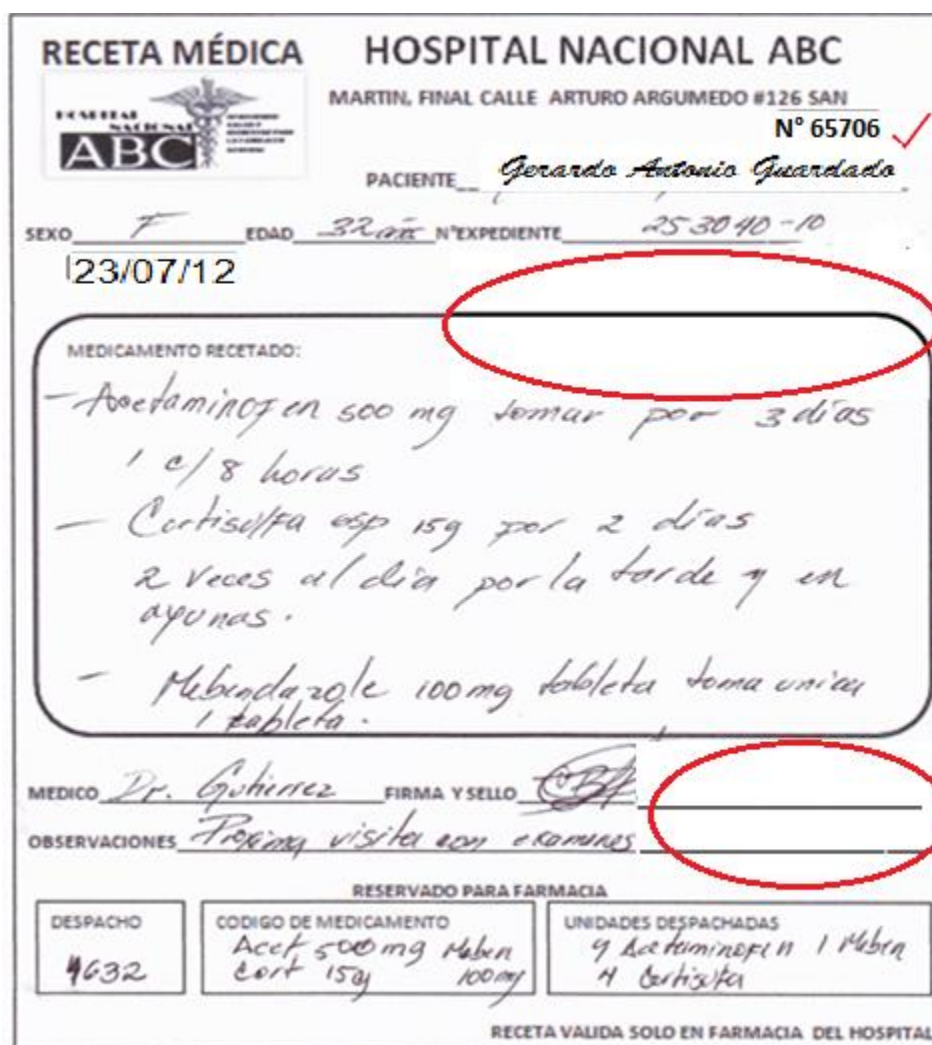 RECETA MÉDICA
HOSPITAL NACIONAL ABC
HOSPITAL
NACIONAL
ABC
MARTIN, FINAL CALLE ARTURO ARGUMEDO #126 SAN
N° 65706
PACIENTE Gerardo Antonio Guardado
SEXO F EDAD 32 N°EXPEDIENTE 253040-10
23/07/12
MEDICAMENTO RECETADO:
- Acetaminofen 500 mg tomar por 3 días
1 c/ 8 horas
- Cortisulfa 15g por 2 días
2 veces al día por la tarde y en
ayunas.
- Mebendazole 100mg tableta toma unica
1 tableta.
MEDICO Dr. Gutierrez FIRMA Y SELLO
OBSERVACIONES Proxima visita con examenes
RESERVADO PARA FARMACIA
DESPACHO
4632
CODIGO DE MEDICAMENTO
Acet 500mg Meben
Cort 15g 100mg
UNIDADES DESPACHADAS
9 Acetaminofen 1 Meben
4 Cortisulfa
RECETA VALIDA SOLO EN FARMACIA DEL HOSPITAL